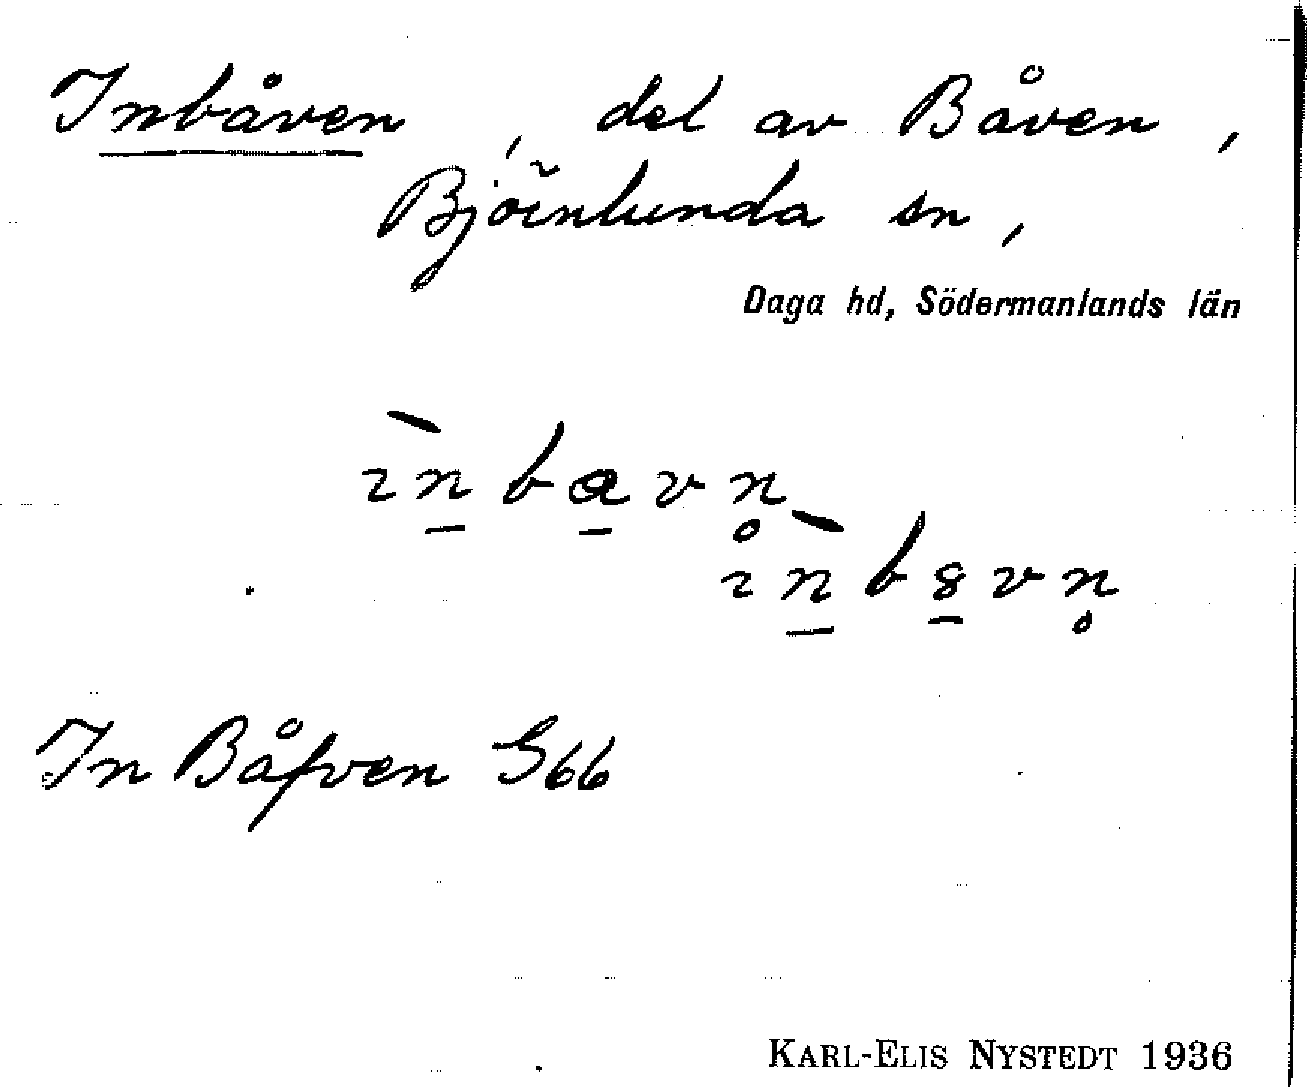 Inbåven, del av Båven,
Björnlunda sn,
Daga hd, Södermanlands län
ı̀n̠bɑ̠vn̥
ı̀n̠b8̠vn̥
In Båfven G66
KARL-ELIS NYSTEDT 1936